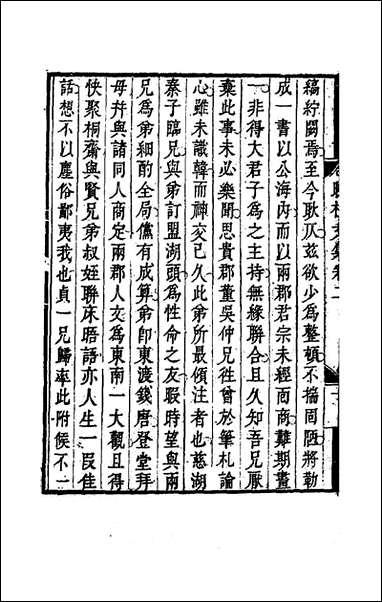 縞紵闕焉至今耿仄茲欲少為整頓不揣固陋將勒
成一書以公海內而以兩郡君宗未經面商難期畫
一非得大君子為之主持無緣聯合且久知吾兄厭
棄此事未必樂聞思貴郡董吳仲兄徃曾於筆札論
心雖未識韓而神交已久此弟所最傾注者也慈湖
秦子臨兄與弟訂盟湖頭為性命之友暇時望與兩
兄為弟細酌全局儻有成算弟卽東渡錢唐登堂拜
母幷與諸同人商定兩郡人文為東南一大觀且得
快聚桐齋與賢兄弟叔姪聯床晤語亦人生一叚佳
話想不以塵俗鄙夷我也貞一兄歸率此附候不一
文集卷二